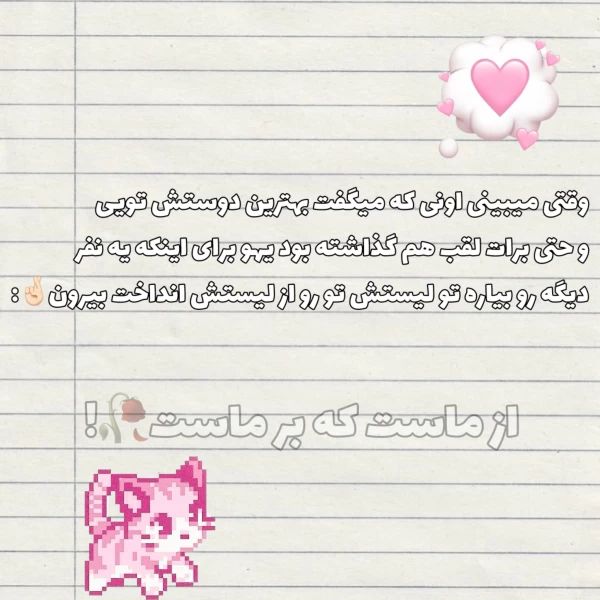 وقتی میبینی اونی که میگفت بهترین دوستش تویی
و حتی برات لقب هم گذاشته بود یهو برای اینکه یه نفر
دیگه رو بیاره تو لیستش تو رو از لیستش انداخت بیرون🤞🏻:
از ماست که بر ماست🥀!